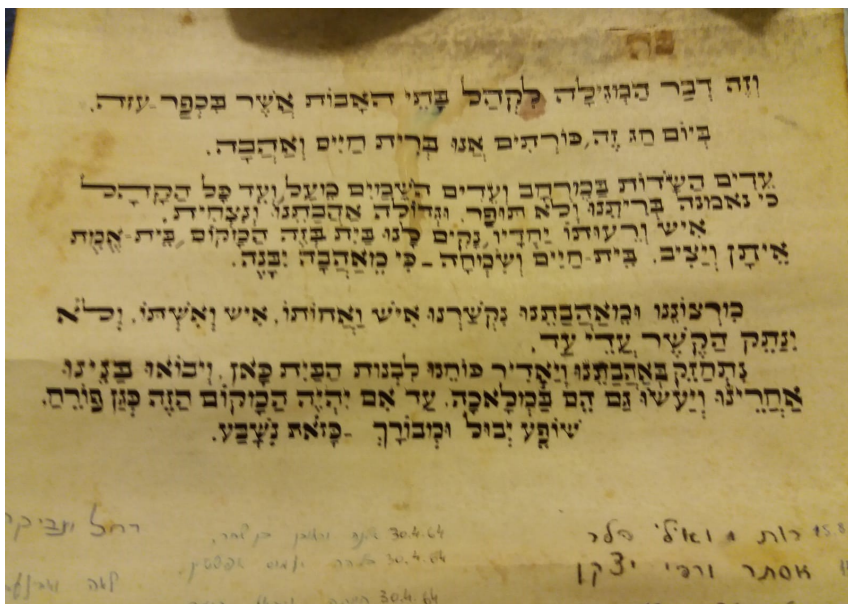 וְזֶה דְבַר הַמְּגִילָּה לִקְהַל בָּתֵי הָאָבוֹת אֲשֶׁר בִּכְפַר-עַזָּה.
בְּיוֹם חַג זֶה, כּוֹרְתִים אָנוּ בְּרִית חַיִּים וְאַהֲבָה.
עֵדִים הַשָּׂדוֹת בַּמֶּרְחָב וְעֵדִים הַשָּׁמַיִם מִמַּעַל, וְעֵד כָּל הַקָּהָל
כִּי נֶאֱמָנָה בְּרִיתֵנוּ וְלֹא תּוּפַר. וּגְדוֹלָה אַהֲבָתֵנוּ וְנִצְחִית.
אִישׁ וְרֵעוּתוֹ יַחְדָּיו, נָקִים לָנוּ בַּיִת בְּזֶה הַמָּקוֹם, בֵּית-אֱמֶת
אֵיתָן וְיַצִּיב. בֵּית-חַיִּים וְשִׂמְחָה - כִּי מֵאַהֲבָה יִבָּנֶה.
מִרְצוֹנֵנוּ וּמֵאַהֲבָתֵנוּ נִקְשַׁרְנוּ אִישׁ וַאֲחוֹתוֹ. אִישׁ וְאִשְׁתּוֹ. וְלֹא
יִנָּתֵק הַקֶּשֶׁר עֲדֵי עַד.
נִתְחַזֵּק בְּאַהֲבָתֵנוּ וְיַאְדִּיר כּוֹחֵנוּ לִבְנוֹת הַבַּיִת כָּאן. וְיָבוֹאוּ בָּנֵינוּ
אַחֲרֵינוּ וְיַעֲשׂוּ גַּם הֵם בַּמְּלָאכָה. עַד אִם יִהְיֶה הַמָּקוֹם הַזֶּה כְּגַן פּוֹרֵחַ.
שׁוֹפֵעַ יְבוּל וּמְבוֹרָךְ - כָּזֹאת נִשָּׁבַע.
רחל
30.4.64
רות ואילי הלר
30.4.64
אסתר ורפי יצקן
לאה
30.4.64